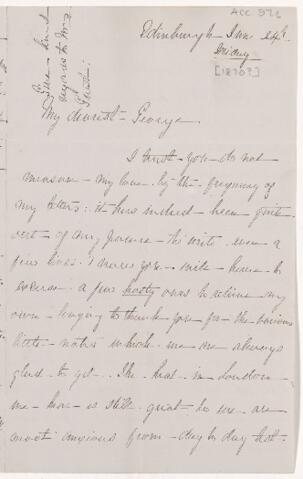 ACC 972
Edinburgh June 24th
Friday
[1870?]
Give kind
regards to Mrs
My dearest George
I trust you do not
measure my love by the frequency of
my letters: it has indeed been quite
out of my power to write even a
few lines.
excuse a few hasty ones to relieve my
own longing to thank you for the various
little notes which we are always
glad to get. The heat in London
we hear is still great & we are
most anxious from day to day lest